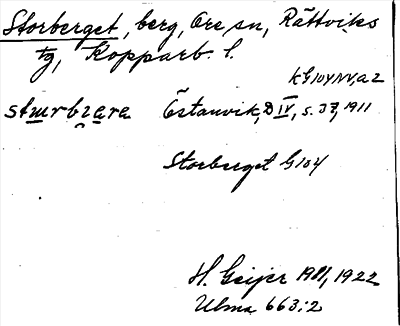 Storberget, berg, Ore sn, Rättviks
tg, Kopparb. l.
K G104NV, a2
sturbzare Östanvik, D IV, s. 37, 1911
Storberget G104
H. Geijer 1911, 1922
Ulma 663:2